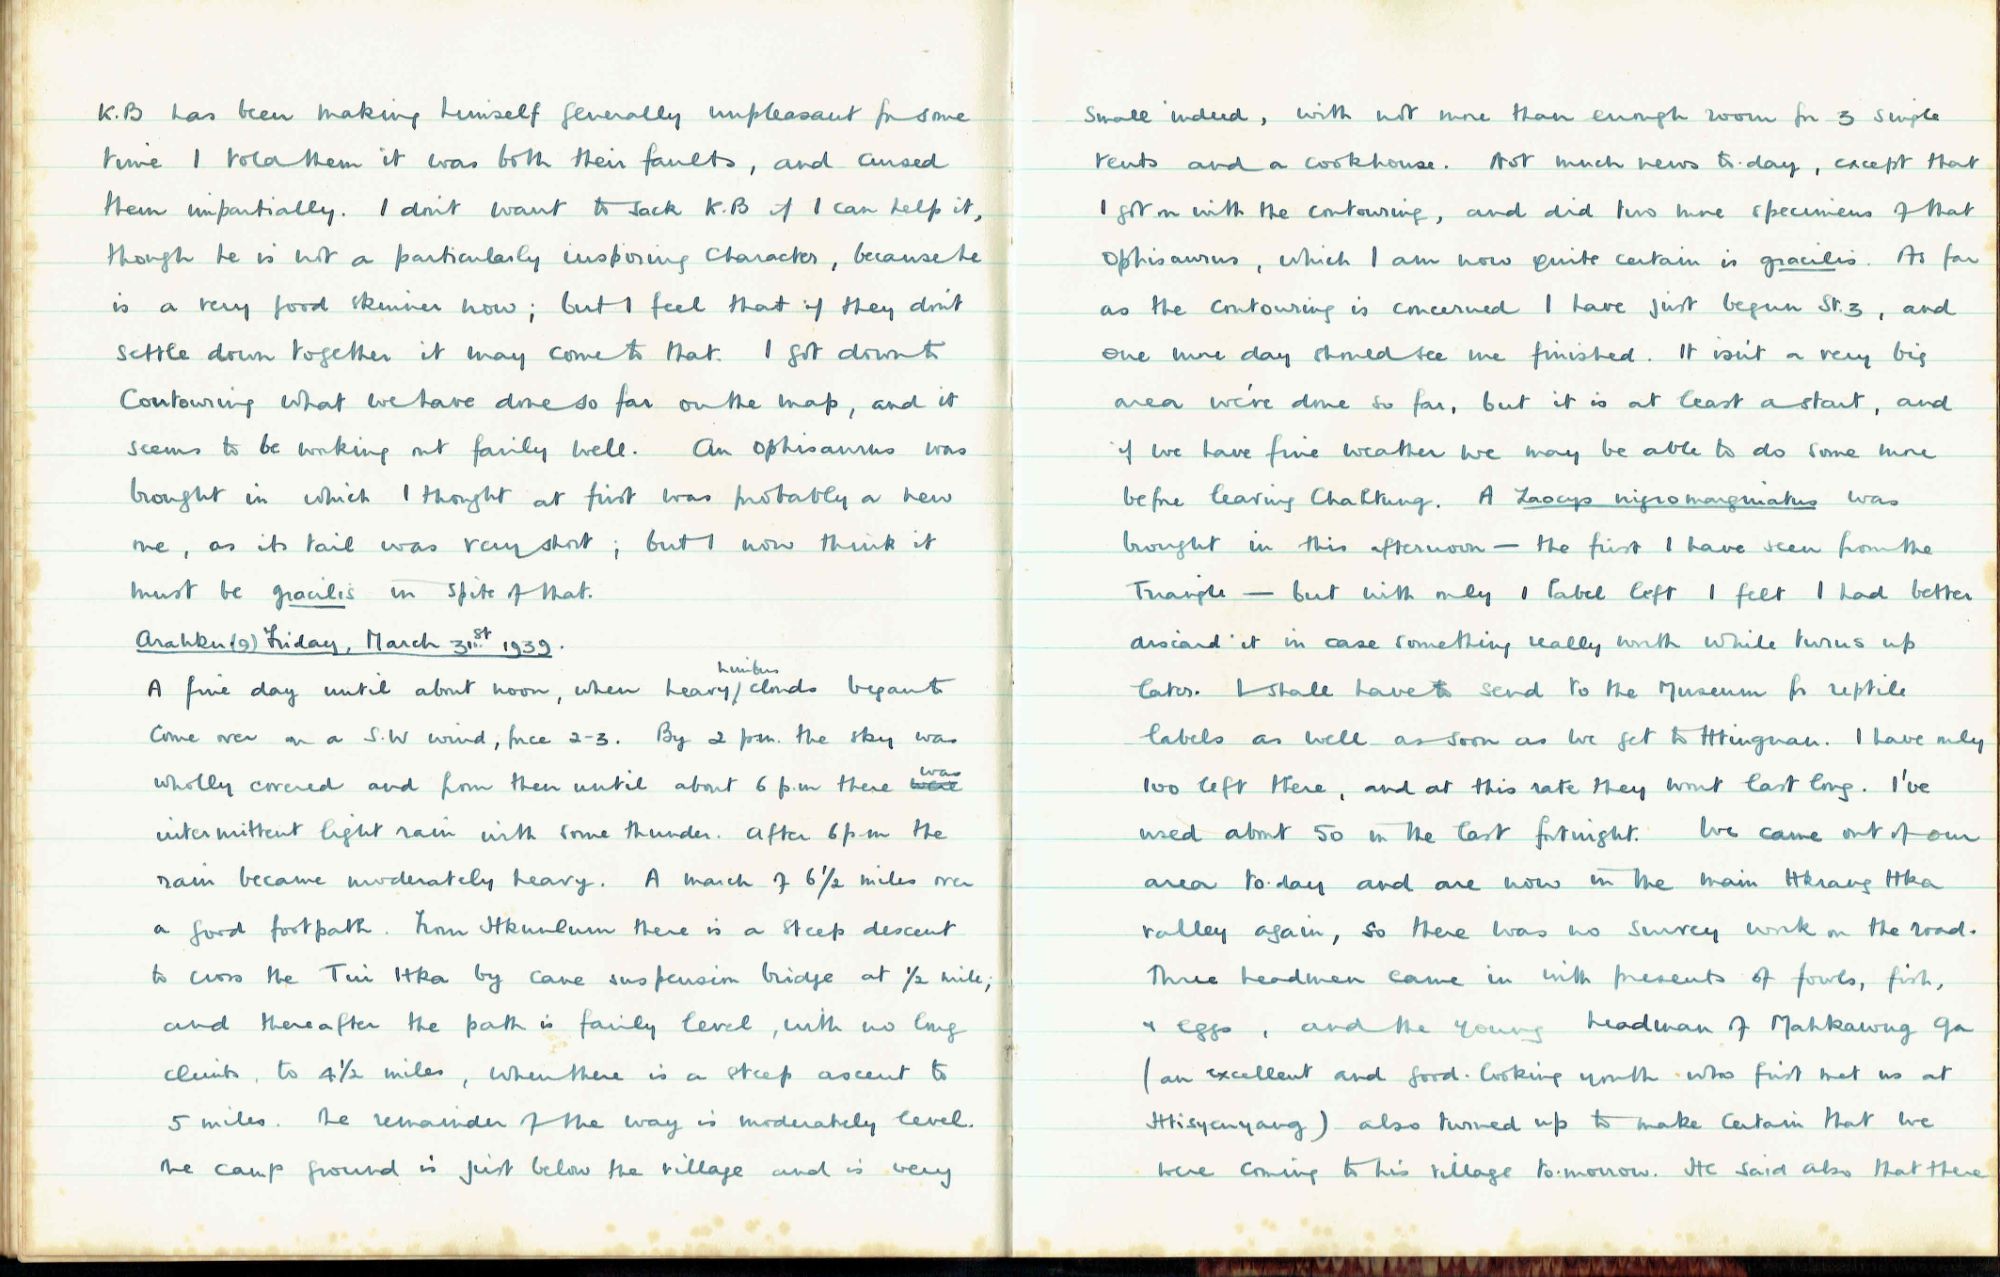 K.B has been making himself generally unpleasant for some
time I told them it was both their faults, and cursed
them impartially. I don't want to sack K.B if I can help it,
though he is not a particularly inspiring character, because he
is a very good skinner now; but I feel that if they don't
settle down together it may come to that. I got down to
contouring what we have done so far on the map, and it
seems to be working out fairly well. An Ophisaurus was
brought in which I thought at first was probably a new
one, as its tail was very short; but I now think it
must be gracilis in spite of that.
Arahku (9) Friday, March 31st 1939.
A fine day until about noon, when heavy nimbus clouds began to
come over on a S.W wind, force 2-3. By 2 p.m. the sky was
wholly covered and from then until about 6 p.m there were was
intermittent light rain with some thunder. After 6 p.m the
rain became moderately heavy. A march of 6½ miles over
a good footpath. From Hkumlum there is a steep descent
to cross the Tui Hka by cane suspension bridge at ½ mile;
and thereafter the path is fairly level, with no long
climbs, to 4½ miles, when there is a steep ascent to
5 miles. The remainder of the way is moderately level.
The camp ground is just below the village and is very
small indeed, with not more than enough room for 3 single
tents and a cookhouse. Not much news to-day, except that
I got on with the contouring, and did two more specimens of that
Ophisaurus, which I am now quite certain is gracilis. As far
as the contouring is concerned I have just begun St.3, and
one more day should see me finished. It isn't a very big
area we've done so far, but it is at least a start, and
if we have fine weather we may be able to do some more
before leaving Chaltung. A Zaocys nigromarginatus was
brought in this afternoon — the first I have seen from the
Triangle — but with only 1 label left I felt I had better
discard it in case something really worth while turns up
later. I shall have to send to the Museum for reptile
labels as well as soon as we get to Htingnan. I have only
100 left there, and at this rate they won't last long. I've
used about 50 in the last fortnight. We came out of our
area to-day and are now in the main Hkrang Hka
valley again, so there was no survey work on the road.
Three headmen came in with presents of fowls, fish,
& eggs, and the young headman of Mahkawng Ga
(an excellent and good-looking youth who first met us at
Htisyenyang) also turned up to make certain that we
were coming to his village to-morrow. He said also that there